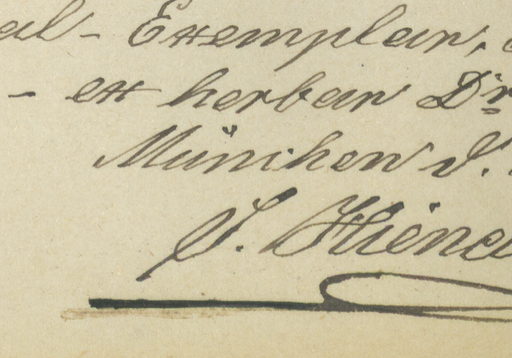 al - Exemplar,
- ex herbar Dr
München d.
J. Hiena